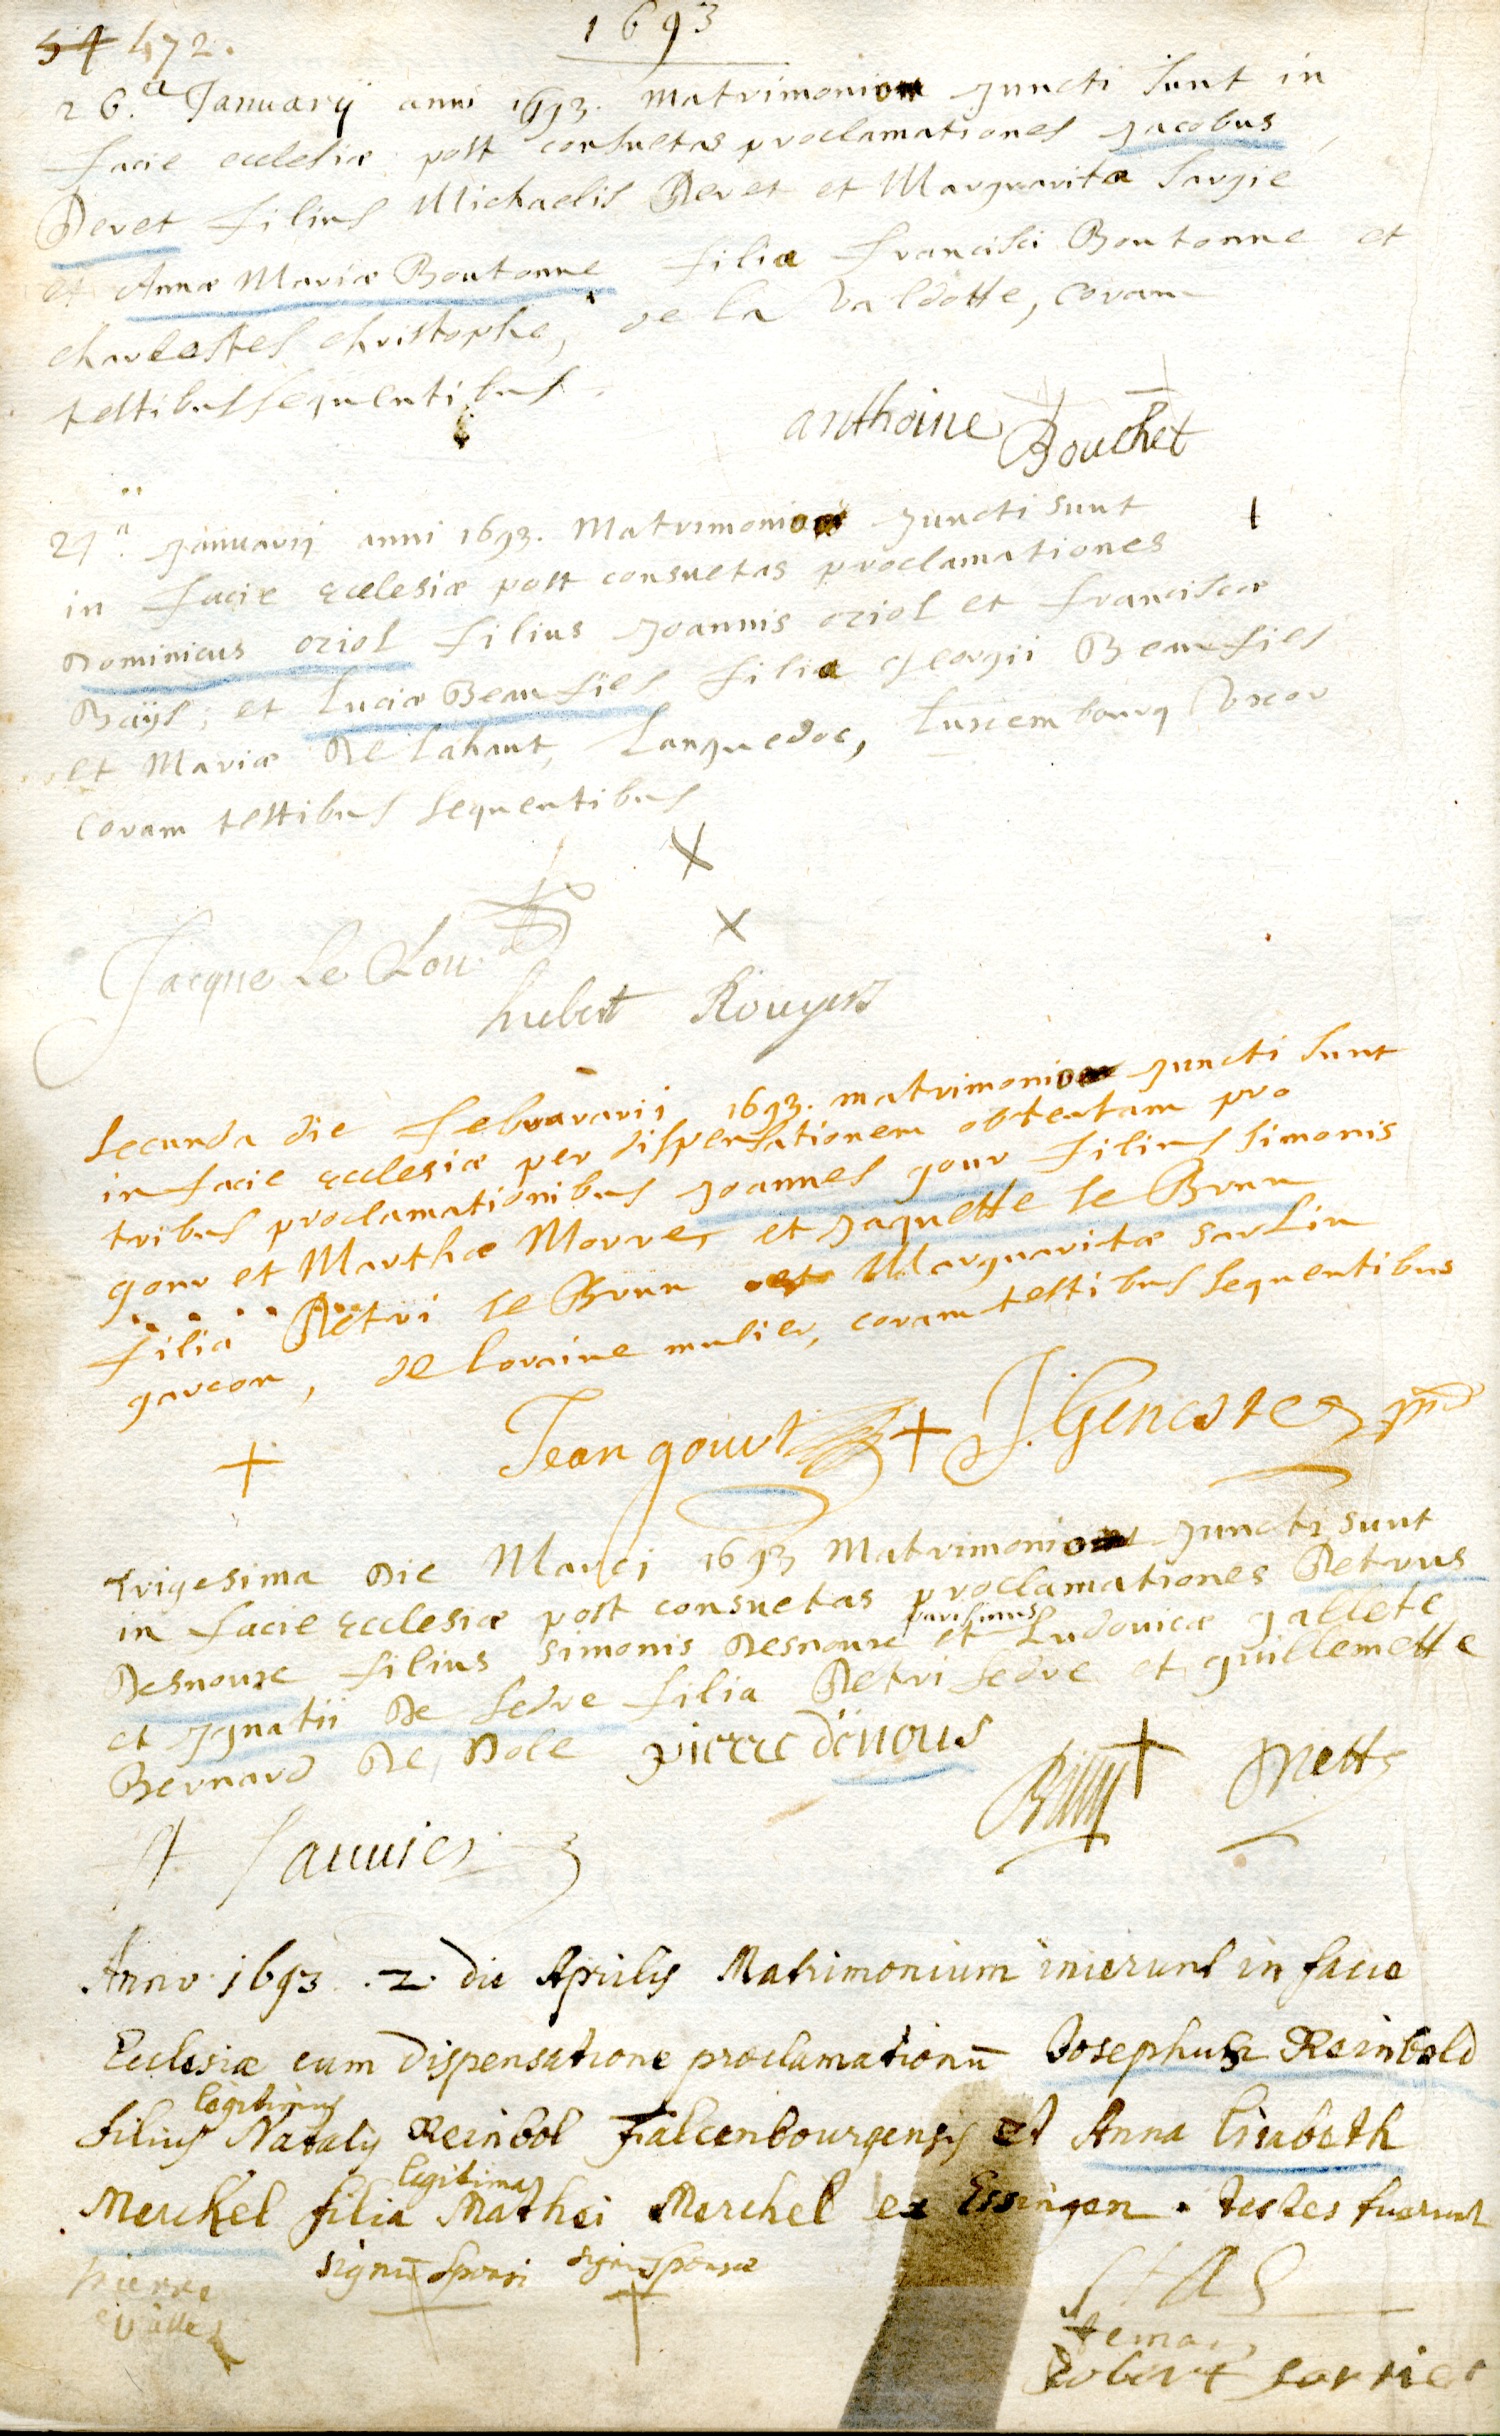 54 472.
1693
26.a Januarij anni 1693. matrimonio juncti sunt in
facie ecclesiæ post consuetas proclamationes Jacobus
Peret filius Michaelis Peret et Marguaritæ Sargie
et Annæ Mariæ Boutonne filiæ francisci Boutonne et
christophe, de la valdotte, coram
testibus sequentibus.
anthoine Bouchet
Januarij anni 1693. Matrimonio Juncti sunt
in facie Ecclesiæ post consuetas proclamationes
Dominicus oziol filius Joannis oziol et franciscæ
Baijs, et Luciæ Beaufils filia georgii Beaufils
et Mariæ De Lahaut, Languedoc, Luxembourg Uxor
coram testibus sequentibus
X
X
Jacque Le Lou
hubert Rouyer
Secunda die februrarii 1693. matrimonio Juncti sunt
in facie Ecclesiæ per dispensationem obtentam pro
tribus proclamationibus Joannes gour filius simonis
gour et Marthæ Morre, et Jaquette le Brun
filia Petri le Brun et Marguaritæ sarlin
garcon, de loraine mulier, coram testibus sequentibus
+
Jean gourt + J. Geneste
Trigesima Die Marci 1693 Matrimonio Juncti sunt
in facie Ecclesiæ post consuetas proclamationes Petrus
parisinus
Desnouze filius simonis Desnouze et Ludovicæ gallete
et Ignatii De Sedre filia Petri Sedre et guillemette
Bernard De Dole pierre dénous
+ Metts
Anno 1693 . 2. die Aprilis Matrimonium inierunt in facie
Ecclesiæ cum dispensatione proclamationū Josephus Reinbold
legitimus
filius Natalis Reinbol Falcenbourgensis et Anna Lisabeth
legitima
Merckel filia Mathei Merckel ex Essingen. testes fuerunt
signū sponsi signū sponsæ
pierre